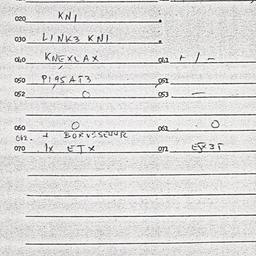 020 KN1
030 LINK3 KN1
040 KNEXLAX 041 + / -
050 P195AT3 051
052 0 053 -
060 0 061 0
062
070 1x ETX 071